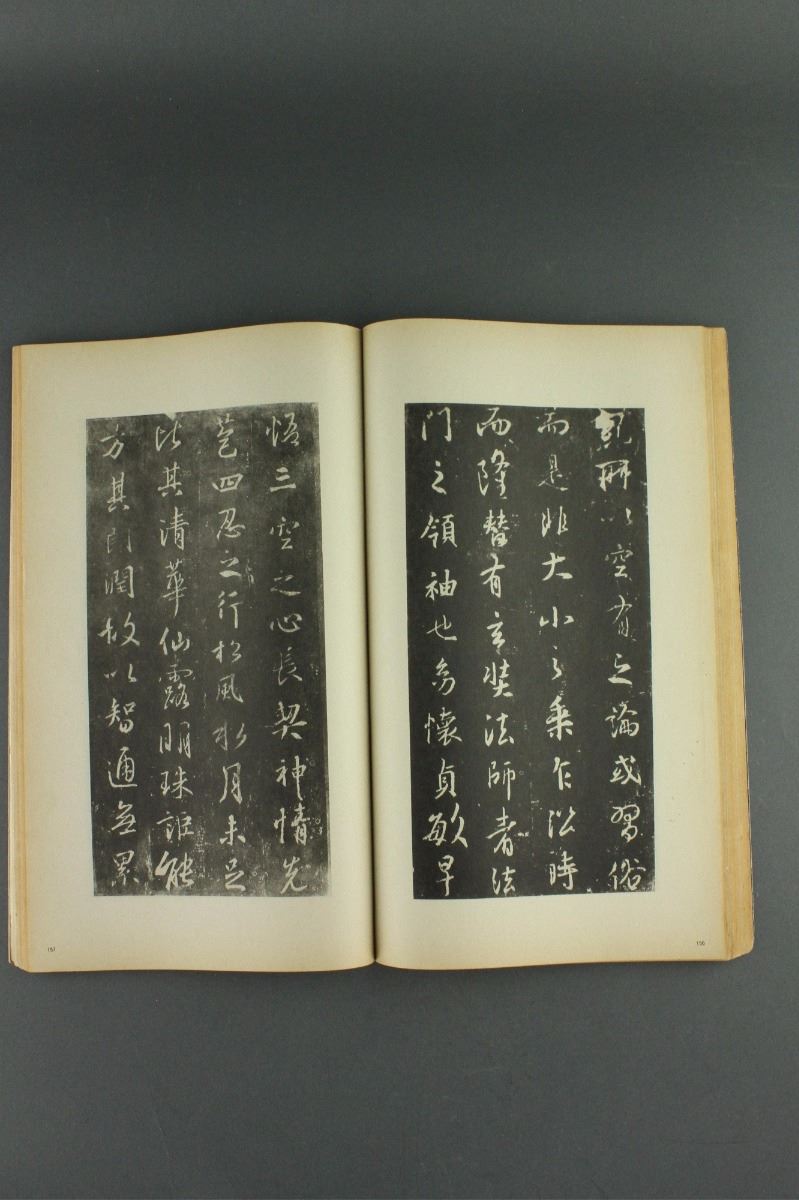 就所以空有之論或習俗
而是非大小之乘乍沿時
而隆替有玄奘法師者法
門之領袖也幼懷貞敏早
悟三空之心長契神情先
苞四忍之行松風水月未足
比其清華仙露明珠詎能
方其朗潤故以智通無累
157
156